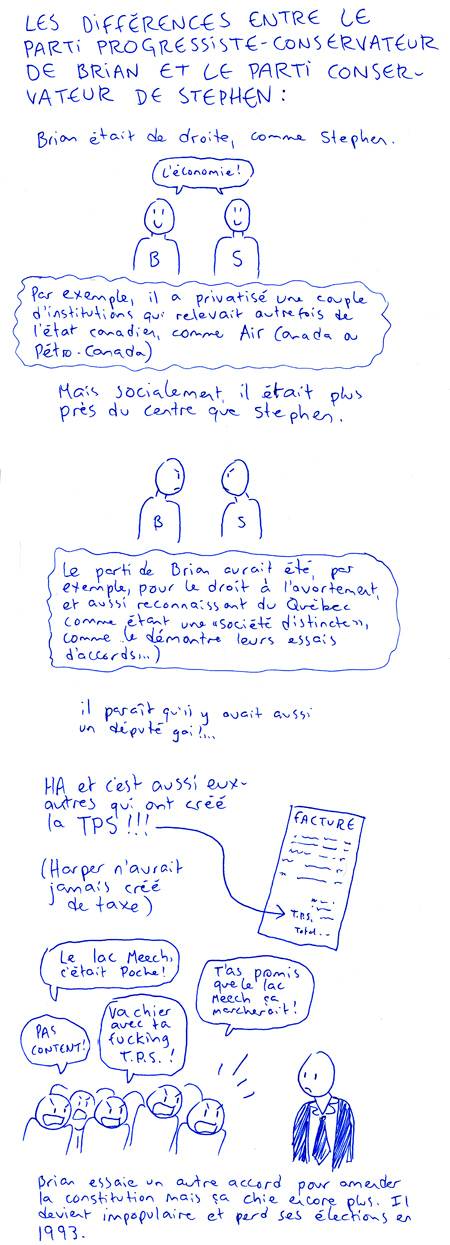 LES DIFFÉRENCES ENTRE LE
PARTI PROGRESSISTE-CONSERVATEUR
DE BRIAN ET LE PARTI CONSER-
VATEUR DE STEPHEN :
Brian était de droite, comme Stephen.
L'économie!
B
S
Par exemple, il a privatisé une couple
d'institutions qui relevait autrefois de
l'état canadien, comme Air Canada ou
Pétro-Canada)
Mais socialement, il était plus
près du centre que Stephen.
B
S
Le parti de Brian aurait été, par
exemple, pour le droit à l'avortement,
et aussi reconnaissant du Québec
comme étant une «société distincte»,
comme le démontre leurs essais
d'accords...)
il paraît qu'il y avait aussi
un député gai!...
HA et c'est aussi eux-
autres qui ont créé
la TPS !!!
FACTURE
T.P.S.
Total...
(Harper n'aurait
jamais créé
de taxe)
Le lac Meech,
c'était Poche!
T'as promis
que le lac
Meech ça
marcherait!
Va chier
avec ta
fucking
T.P.S. !
PAS
CONTENT!
Brian essaie un autre accord pour amender
la constitution mais ça chie encore plus. Il
devient impopulaire et perd ses élections en
1993.